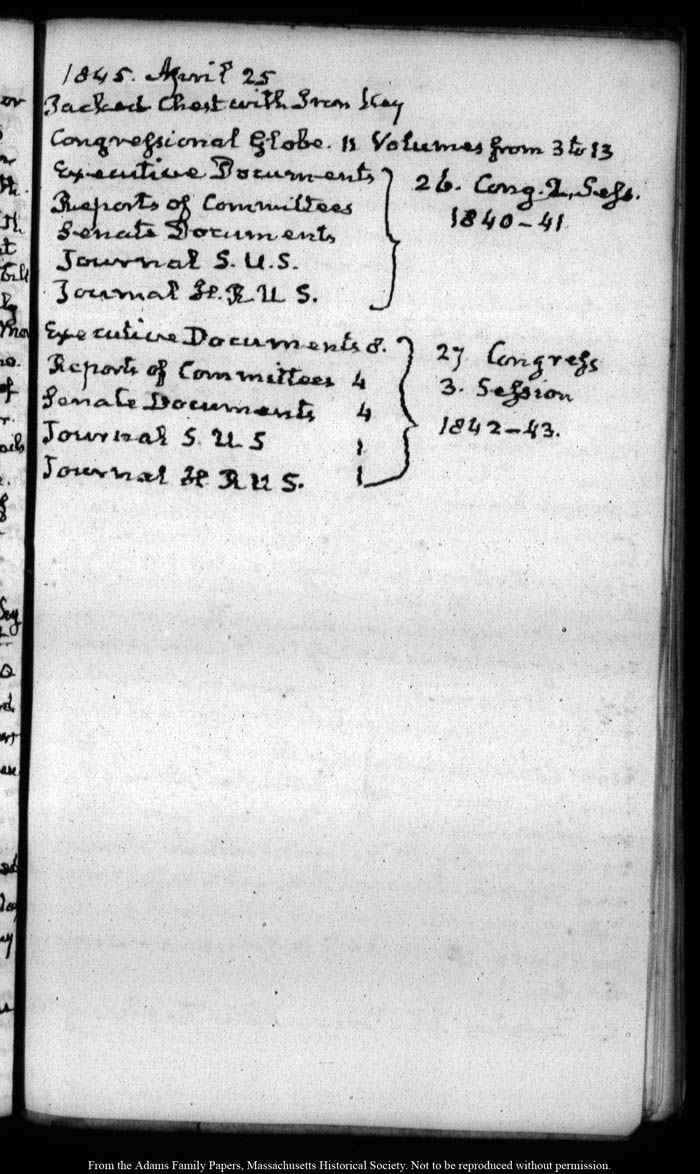 1845. April 25
Packed Chest with Iron Key
Congressional Globe. 11 Volumes from 3 to 13
Executive Documents
Reports of Committees
Senate Documents
Journal S. U.S.
Journal H. R U S.
26. Cong. 2, Sess.
1840-41
Executive Documents 8.
Reports of Committees 4
Senate Documents 4
Journal S. U S 1
Journal H. R U S. 1
27 Congress
3. Session
1842-43.
From the Adams Family Papers, Massachusetts Historical Society. Not to be reproduced without permission.